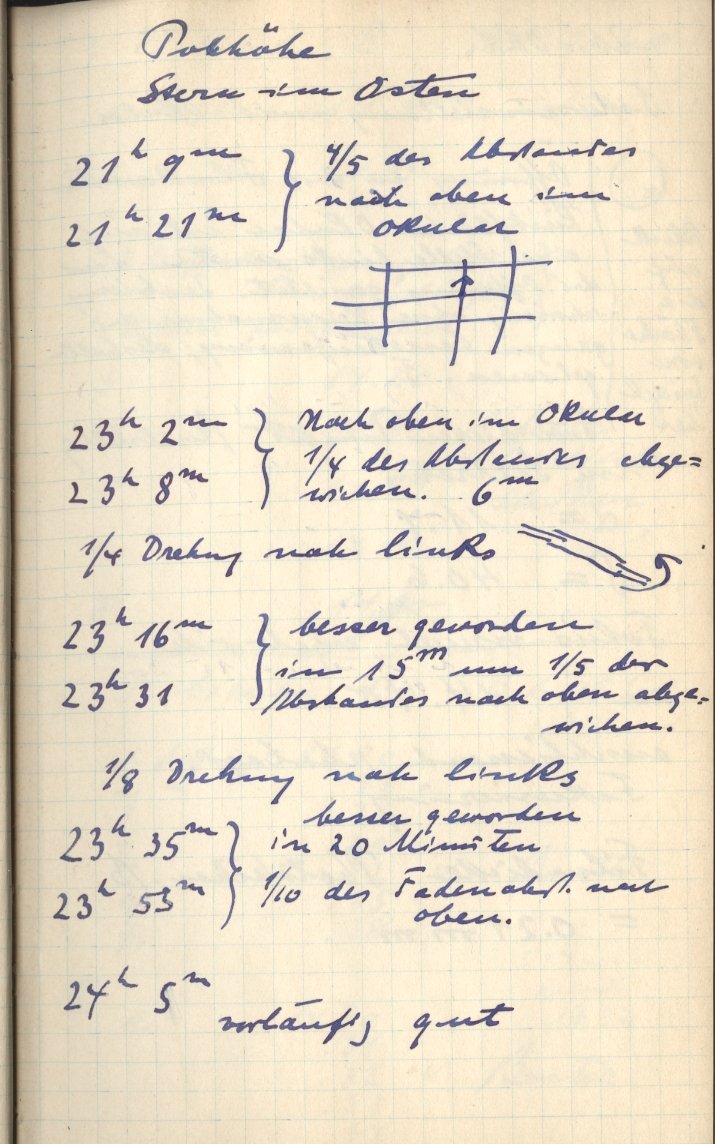 Polhöhe
Stern im Osten
21h 9m } 4/5 des Abstandes
nach oben im
21h 21m Okular
23h 2m } Nach oben im Okular
23h 8m 1/4 des Abstandes abge=
wichen. 6m
1/4 Drehung nach links
23h 16m } besser geworden
in 15m um 1/5 des
23h 31 Abstandes nach oben abge=
wichen.
1/8 Drehung nach links
besser geworden
23h 35m } in 20 Minuten
23h 53m 1/10 des Fadenabst. nach
oben.
24h 5m
vorläufig gut